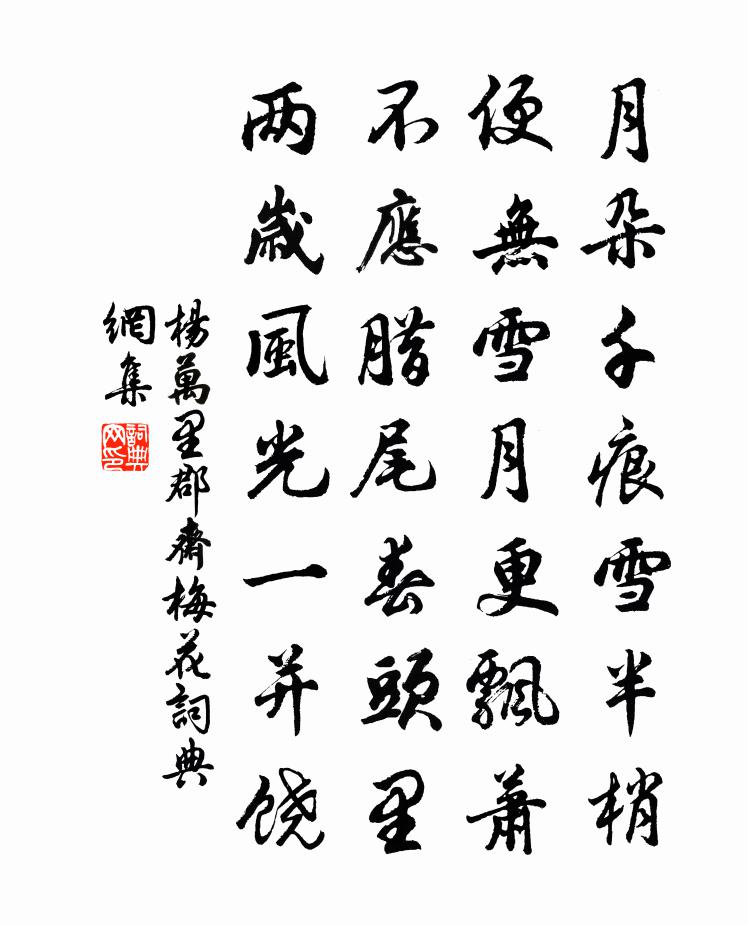 月朵千痕雪半梢
便無雪月更飄蕭
不應腊尾春頭里
两歲風光一并饶
楊萬里郡齋梅花詞典
網集
詞典
网印